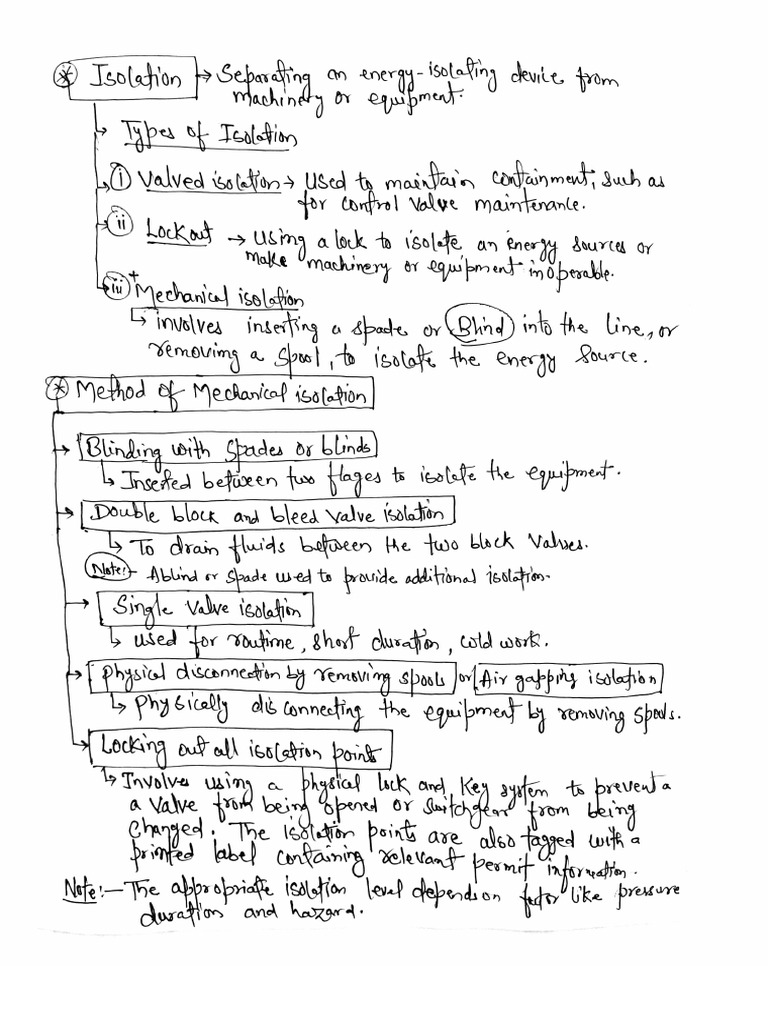 * Isolation → Separating an energy-isolating device from
machinery or equipment.
Types of Isolation
i Valved isolation → Used to maintain containment, such as
for control valve maintenance.
ii Lockout → Using a lock to isolate an energy sources or
make machinery or equipment inoperable.
iii Mechanical isolation
involves inserting a spade or Blind into the line, or
removing a spool, to isolate the energy source.
* Method of Mechanical isolation
Blinding with spades or blinds
Inserted between two flages to isolate the equipment.
Double block and bleed valve isolation
To drain fluids between the two block valves.
Note:- A blind or spade used to provide additional isolation.
Single valve isolation
used for routine, short duration, cold work.
Physical disconnection by removing spools or Air gapping isolation
Physically disconnecting the equipment by removing spools.
Locking out all isolation points
Involves using a physical lock and key system to prevent a
a valve from being opened or switchgear from being
changed. The isolation points are also tagged with a
printed label containing relevant permit information.
Note:- The appropriate isolation level depends on factor like pressure
duration and hazard.